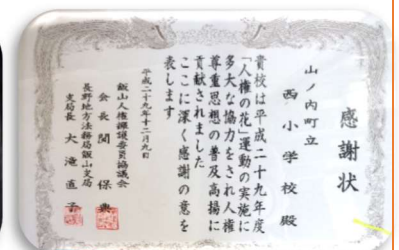 感謝状
山ノ内町立
西小学校殿
貴校は平成二十九年度
「人権の花」運動の実施に
多大な協力をされ人権
尊重思想の普及高揚に
貢献されました
ここに深く感謝の意を
表します
平成二十九年十二月九日
飯山人権擁護委員協議会
会長 関 保典
長野地方法務局飯山支局
支局長 大滝直子